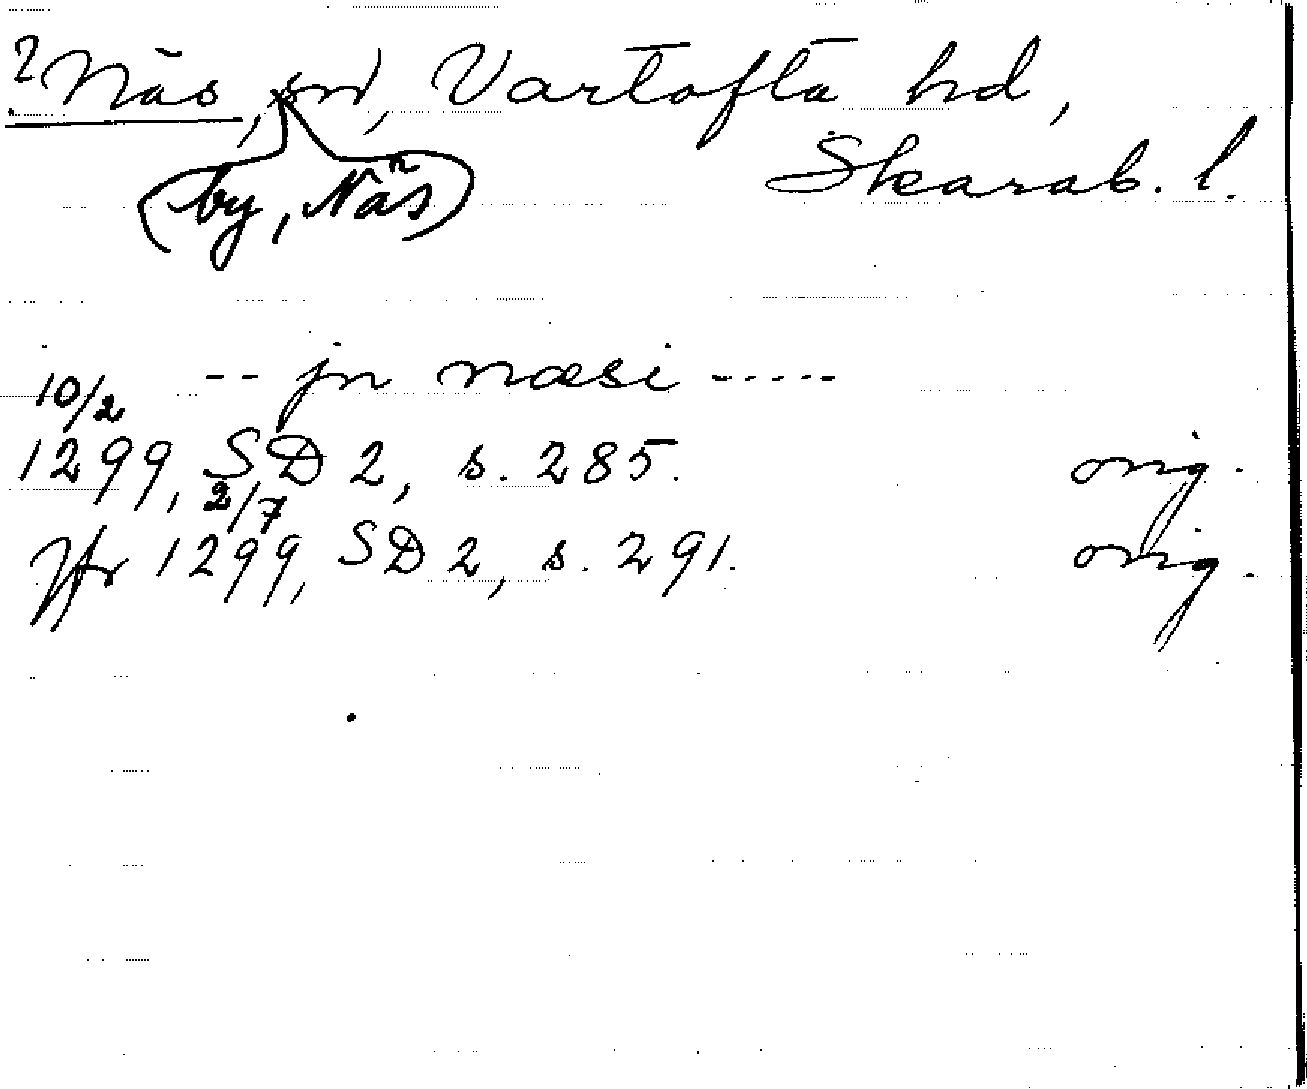 ? Näs, sn, Vartofta hd,
(by, Näs)
Skarab. l.
-- jn næsi -----
10/2
1299, SD 2, s. 285. orig.
2/7
Jfr 1299, SD 2, s. 291. orig.